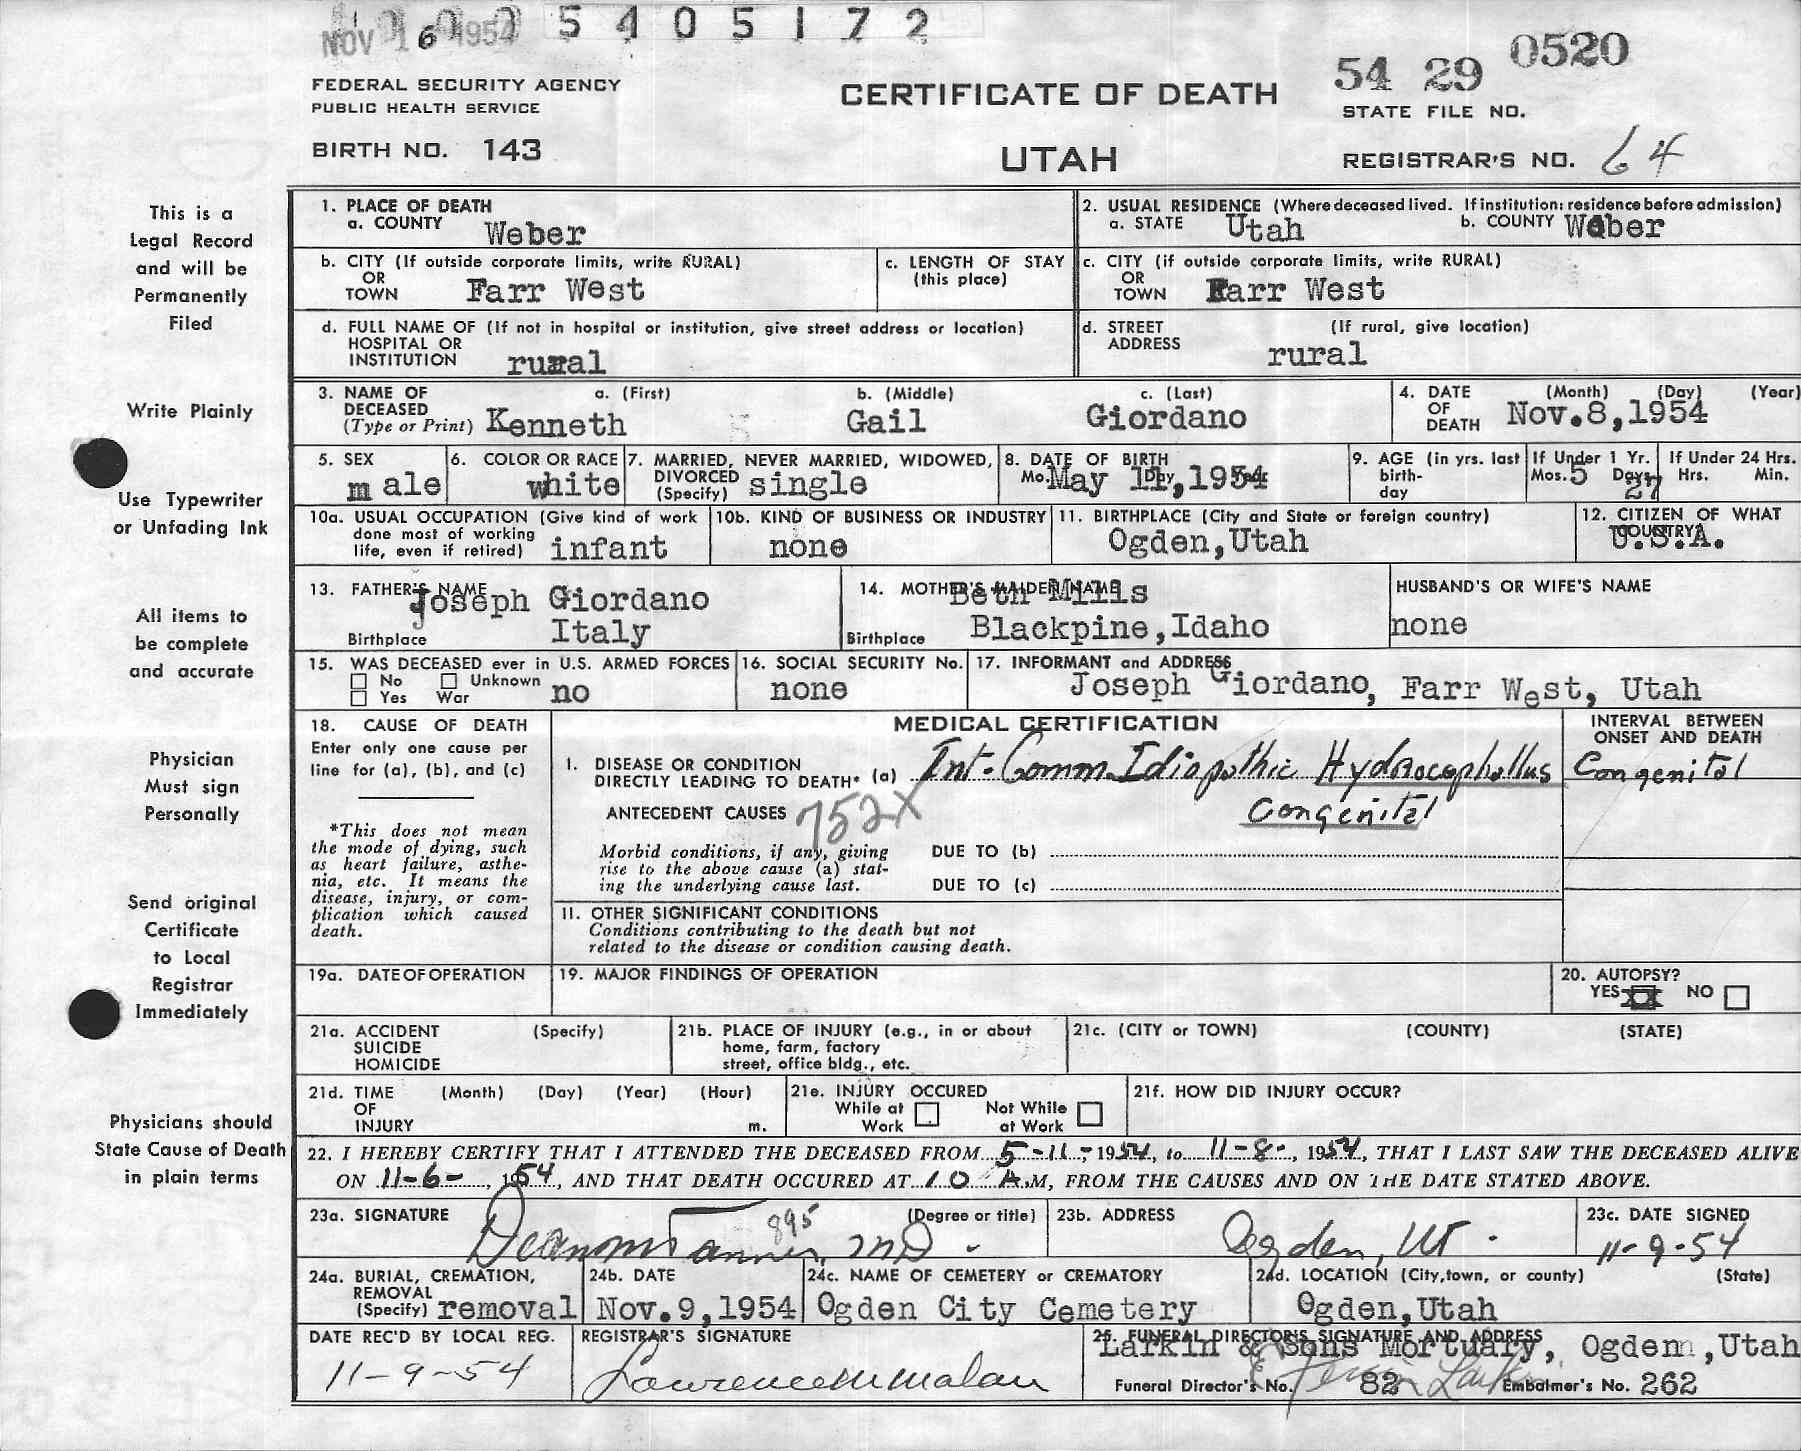 NOV 16 1954 5 4 0 5 1 7 2
54 29 0520
FEDERAL SECURITY AGENCY
PUBLIC HEALTH SERVICE
CERTIFICATE OF DEATH
STATE FILE NO.
BIRTH NO. 143
UTAH
REGISTRAR'S NO. 64
This is a
Legal Record
and will be
Permanently
Filed
Write Plainly
Use Typewriter
or Unfading Ink
All items to
be complete
and accurate
Physician
Must sign
Personally
Send original
Certificate
to Local
Registrar
Immediately
Physicians should
State Cause of Death
in plain terms
1. PLACE OF DEATH
a. COUNTY Weber
2. USUAL RESIDENCE (Where deceased lived. If institution: residence before admission)
a. STATE Utah b. COUNTY Weber
b. CITY (If outside corporate limits, write RURAL)
OR
TOWN Farr West
c. LENGTH OF STAY
(this place)
c. CITY (if outside corporate limits, write RURAL)
OR
TOWN Farr West
d. FULL NAME OF (If not in hospital or institution, give street address or location)
HOSPITAL OR
INSTITUTION rural
d. STREET (If rural, give location)
ADDRESS rural
3. NAME OF a. (First) b. (Middle) c. (Last)
DECEASED
(Type or Print) Kenneth Gail Giordano
4. DATE (Month) (Day) (Year)
OF
DEATH Nov.8,1954
5. SEX
male
6. COLOR OR RACE
white
7. MARRIED, NEVER MARRIED, WIDOWED,
DIVORCED
(Specify) single
8. DATE OF BIRTH
Mo. May 11,1954
9. AGE (in yrs. last
birth-
day
If Under 1 Yr.
Mos. 5 Days 27
If Under 24 Hrs.
Hrs. Min.
10a. USUAL OCCUPATION (Give kind of work
done most of working
life, even if retired) infant
10b. KIND OF BUSINESS OR INDUSTRY
none
11. BIRTHPLACE (City and State or foreign country)
Ogden,Utah
12. CITIZEN OF WHAT
COUNTRY?
U.S.A.
13. FATHER'S NAME Joseph Giordano
Birthplace Italy
14. MOTHER'S MAIDEN NAME Beth Mills
Birthplace Blackpine,Idaho
HUSBAND'S OR WIFE'S NAME
none
15. WAS DECEASED ever in U.S. ARMED FORCES
No Unknown
Yes War no
16. SOCIAL SECURITY No.
none
17. INFORMANT and ADDRESS
Joseph Giordano, Farr West, Utah
18. CAUSE OF DEATH
Enter only one cause per
line for (a), (b), and (c)
*This does not mean
the mode of dying, such
as heart failure, asthe-
nia, etc. It means the
disease, injury, or com-
plication which caused
death.
MEDICAL CERTIFICATION
INTERVAL BETWEEN
ONSET AND DEATH
I. DISEASE OR CONDITION
DIRECTLY LEADING TO DEATH* (a) Int. Comm. Idiopathic Hydrocephallus Congenital
ANTECEDENT CAUSES 752X Congenital
Morbid conditions, if any, giving
rise to the above cause (a) stat-
ing the underlying cause last.
DUE TO (b)
DUE TO (c)
II. OTHER SIGNIFICANT CONDITIONS
Conditions contributing to the death but not
related to the disease or condition causing death.
19a. DATE OF OPERATION
19. MAJOR FINDINGS OF OPERATION
20. AUTOPSY?
YES NO
21a. ACCIDENT (Specify)
SUICIDE
HOMICIDE
21b. PLACE OF INJURY (e.g., in or about
home, farm, factory
street, office bldg., etc.
21c. (CITY or TOWN) (COUNTY) (STATE)
21d. TIME (Month) (Day) (Year) (Hour)
OF
INJURY m.
21e. INJURY OCCURED
While at Work Not While at Work
21f. HOW DID INJURY OCCUR?
22. I HEREBY CERTIFY THAT I ATTENDED THE DECEASED FROM 5-11-, 1954, to 11-8-, 1954, THAT I LAST SAW THE DECEASED ALIVE
ON 11-6-, 1954, AND THAT DEATH OCCURED AT 10 A.M, FROM THE CAUSES AND ON THE DATE STATED ABOVE.
23a. SIGNATURE (Degree or title)
Tanner, MD. 895
23b. ADDRESS
Ogden, Ut.
23c. DATE SIGNED
11-9-54
24a. BURIAL, CREMATION,
REMOVAL
(Specify) removal
24b. DATE
Nov.9,1954
24c. NAME OF CEMETERY or CREMATORY
Ogden City Cemetery
24d. LOCATION (City, town, or county) (State)
Ogden,Utah
DATE REC'D BY LOCAL REG.
11-9-54
REGISTRAR'S SIGNATURE
Lawrence M Malan
25. FUNERAL DIRECTOR'S SIGNATURE AND ADDRESS
Larkin & Sons Mortuary, Ogdem ,Utah
Funeral Director's No. 82 Embalmer's No. 262